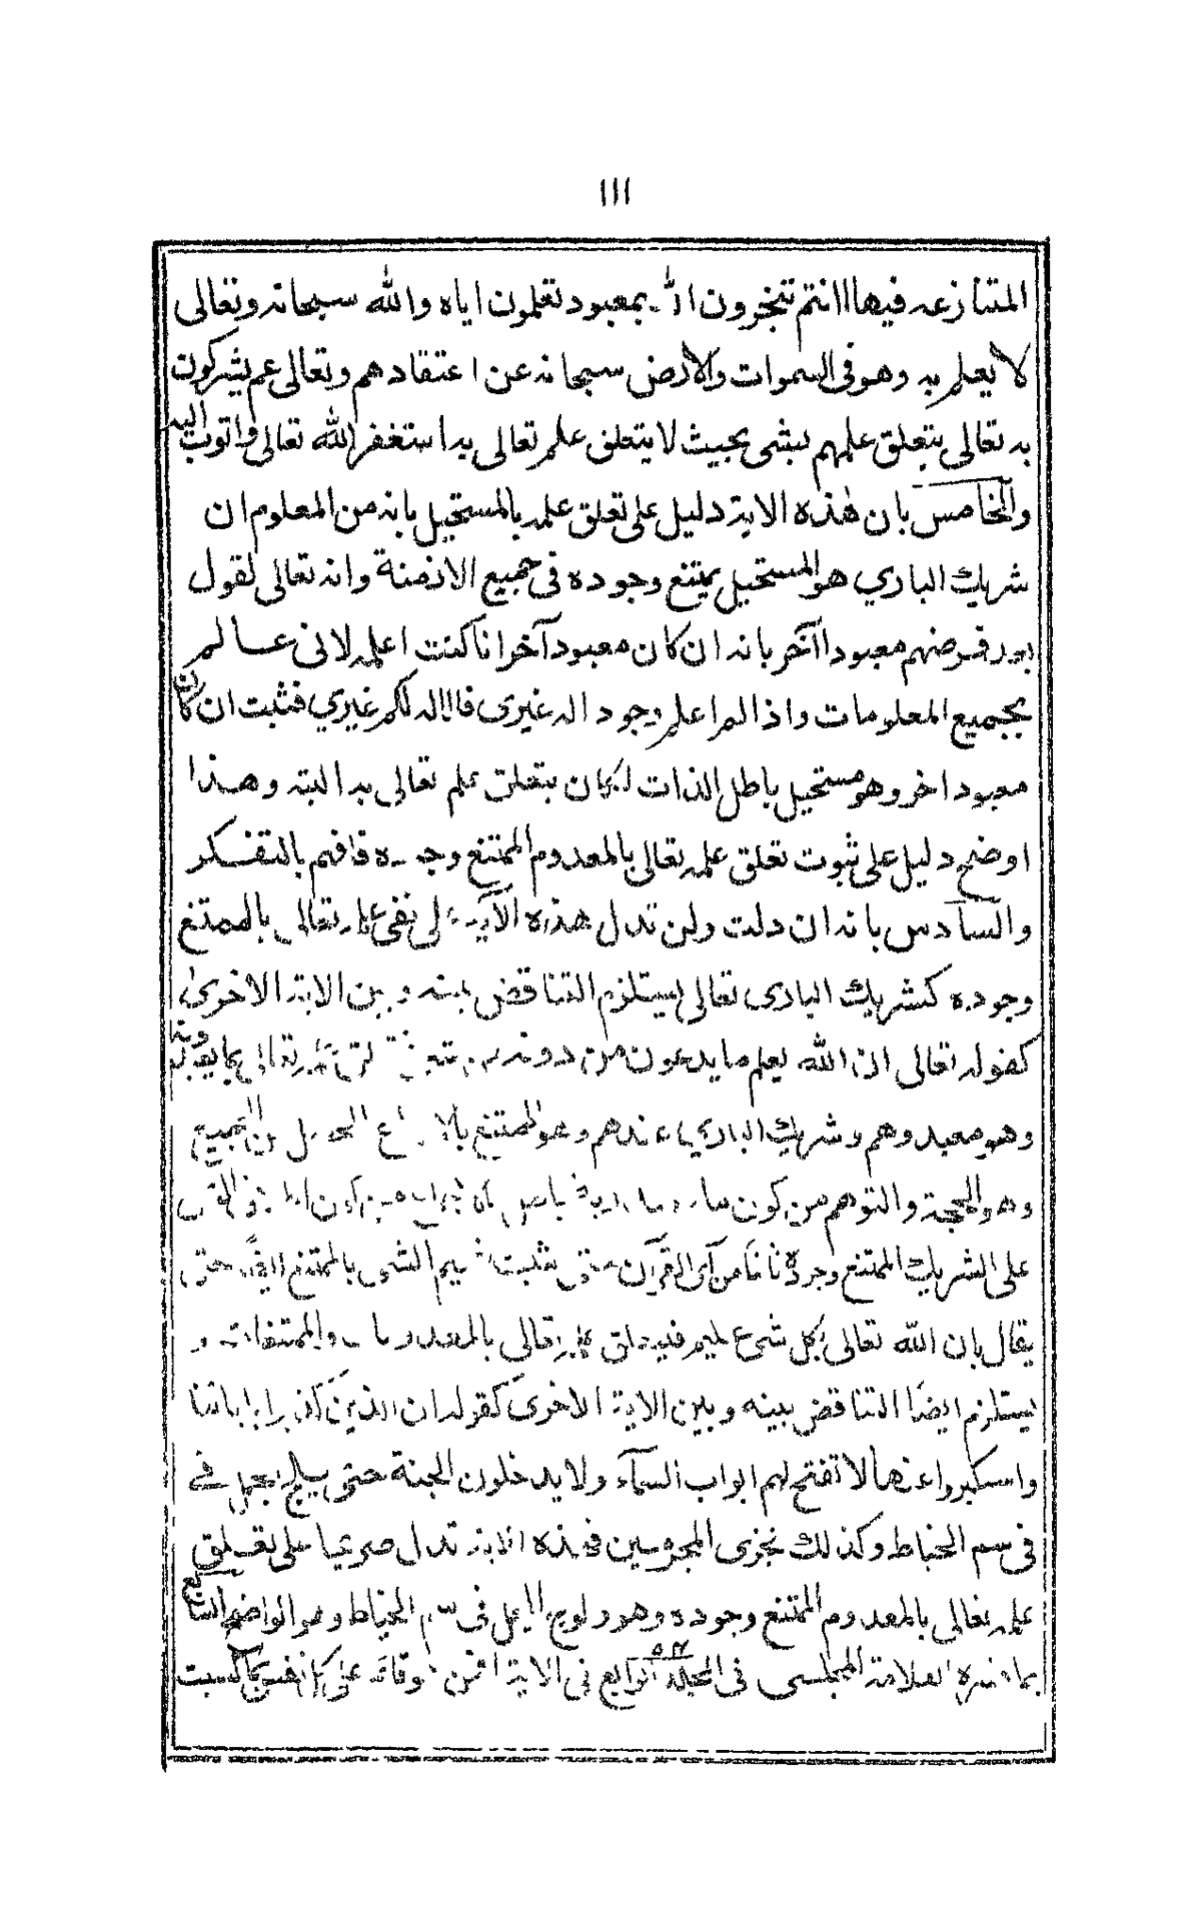 ١١١
المتنازعه فيها انتم تخبرون الله بمعبود تعلمون اياه والله سبحانه وتعالى
لا يعلم به وهو فى السموات والارض سبحانه عن اعتقادهم وتعالى عم يشركون
به تعالى يتعلق علمهم بشى بحيث لا يتعلق علم تعالى به استغفر الله تعالى واتوب اليه
والخامس بان هذه الاية دليل على تعلق علمه بالمستحيل بانه من المعلوم ان
شريك الباري هو المستحيل يمتنع وجوده فى جميع الازمنة وانه تعالى لقول
بعد فرضهم معبودا آخر بانه ان كان معبود آخر انا كنت اعلمه لانى عالم
بجميع المعلومات واذا لم اعلم وجود اله غيرى فلا اله لكم غيري فثبت ان كان
معبود اخر وهو مستحيل باطل الذات لكان يتعلق علم تعالى به البته وهذا
اوضح دليل على ثبوت تعلق علمه تعالى بالمعدوم الممتنع وجوده فافهم بالتفكر
والسادس بانه ان دلت ولن تدل هذه الآية على نفى علمه تعالى بالممتنع
وجوده كشريك البارى تعالى ليستلزم التناقض بينه وبين الاية الاخرى
كقوله تعالى ان الله يعلم ما يدعون من دونه تعالى بما يدعونه
وهو معبدوهم وشريك الباري عندهم وهو الممتنع من الجميع
وهو الحجة والتوهم من كون
على الشريك الممتنع وجوده ثانيا من آى القرآن حتى تثبت الشى بالممتنع ايضا حتى
يقال بان الله تعالى بكل شىء عليم فيتعلق علمه تعالى بالمعدومات والممتنعات و
يستلزم ايضا التناقض بينه وبين الاية الاخرى كقوله ان الذين كذبوا باياتنا
واستكبروا عنها لا تفتح لهم ابواب السمآء ولا يدخلون الجنة حتى يلج الجمل فے
فى سم الخياط وكذلك نجزى المجرمين فهذه الاية تدل صريحا على تعلق
علمه تعالى بالمعدوم الممتنع وجوده وهو ولوج الجمل فى سم الخياط وهو الواضح السابع
بما فسره العلامة المجلسى فى المجلد الرابع فى الاية افمن هو قائم على كل نفس بما كسبت